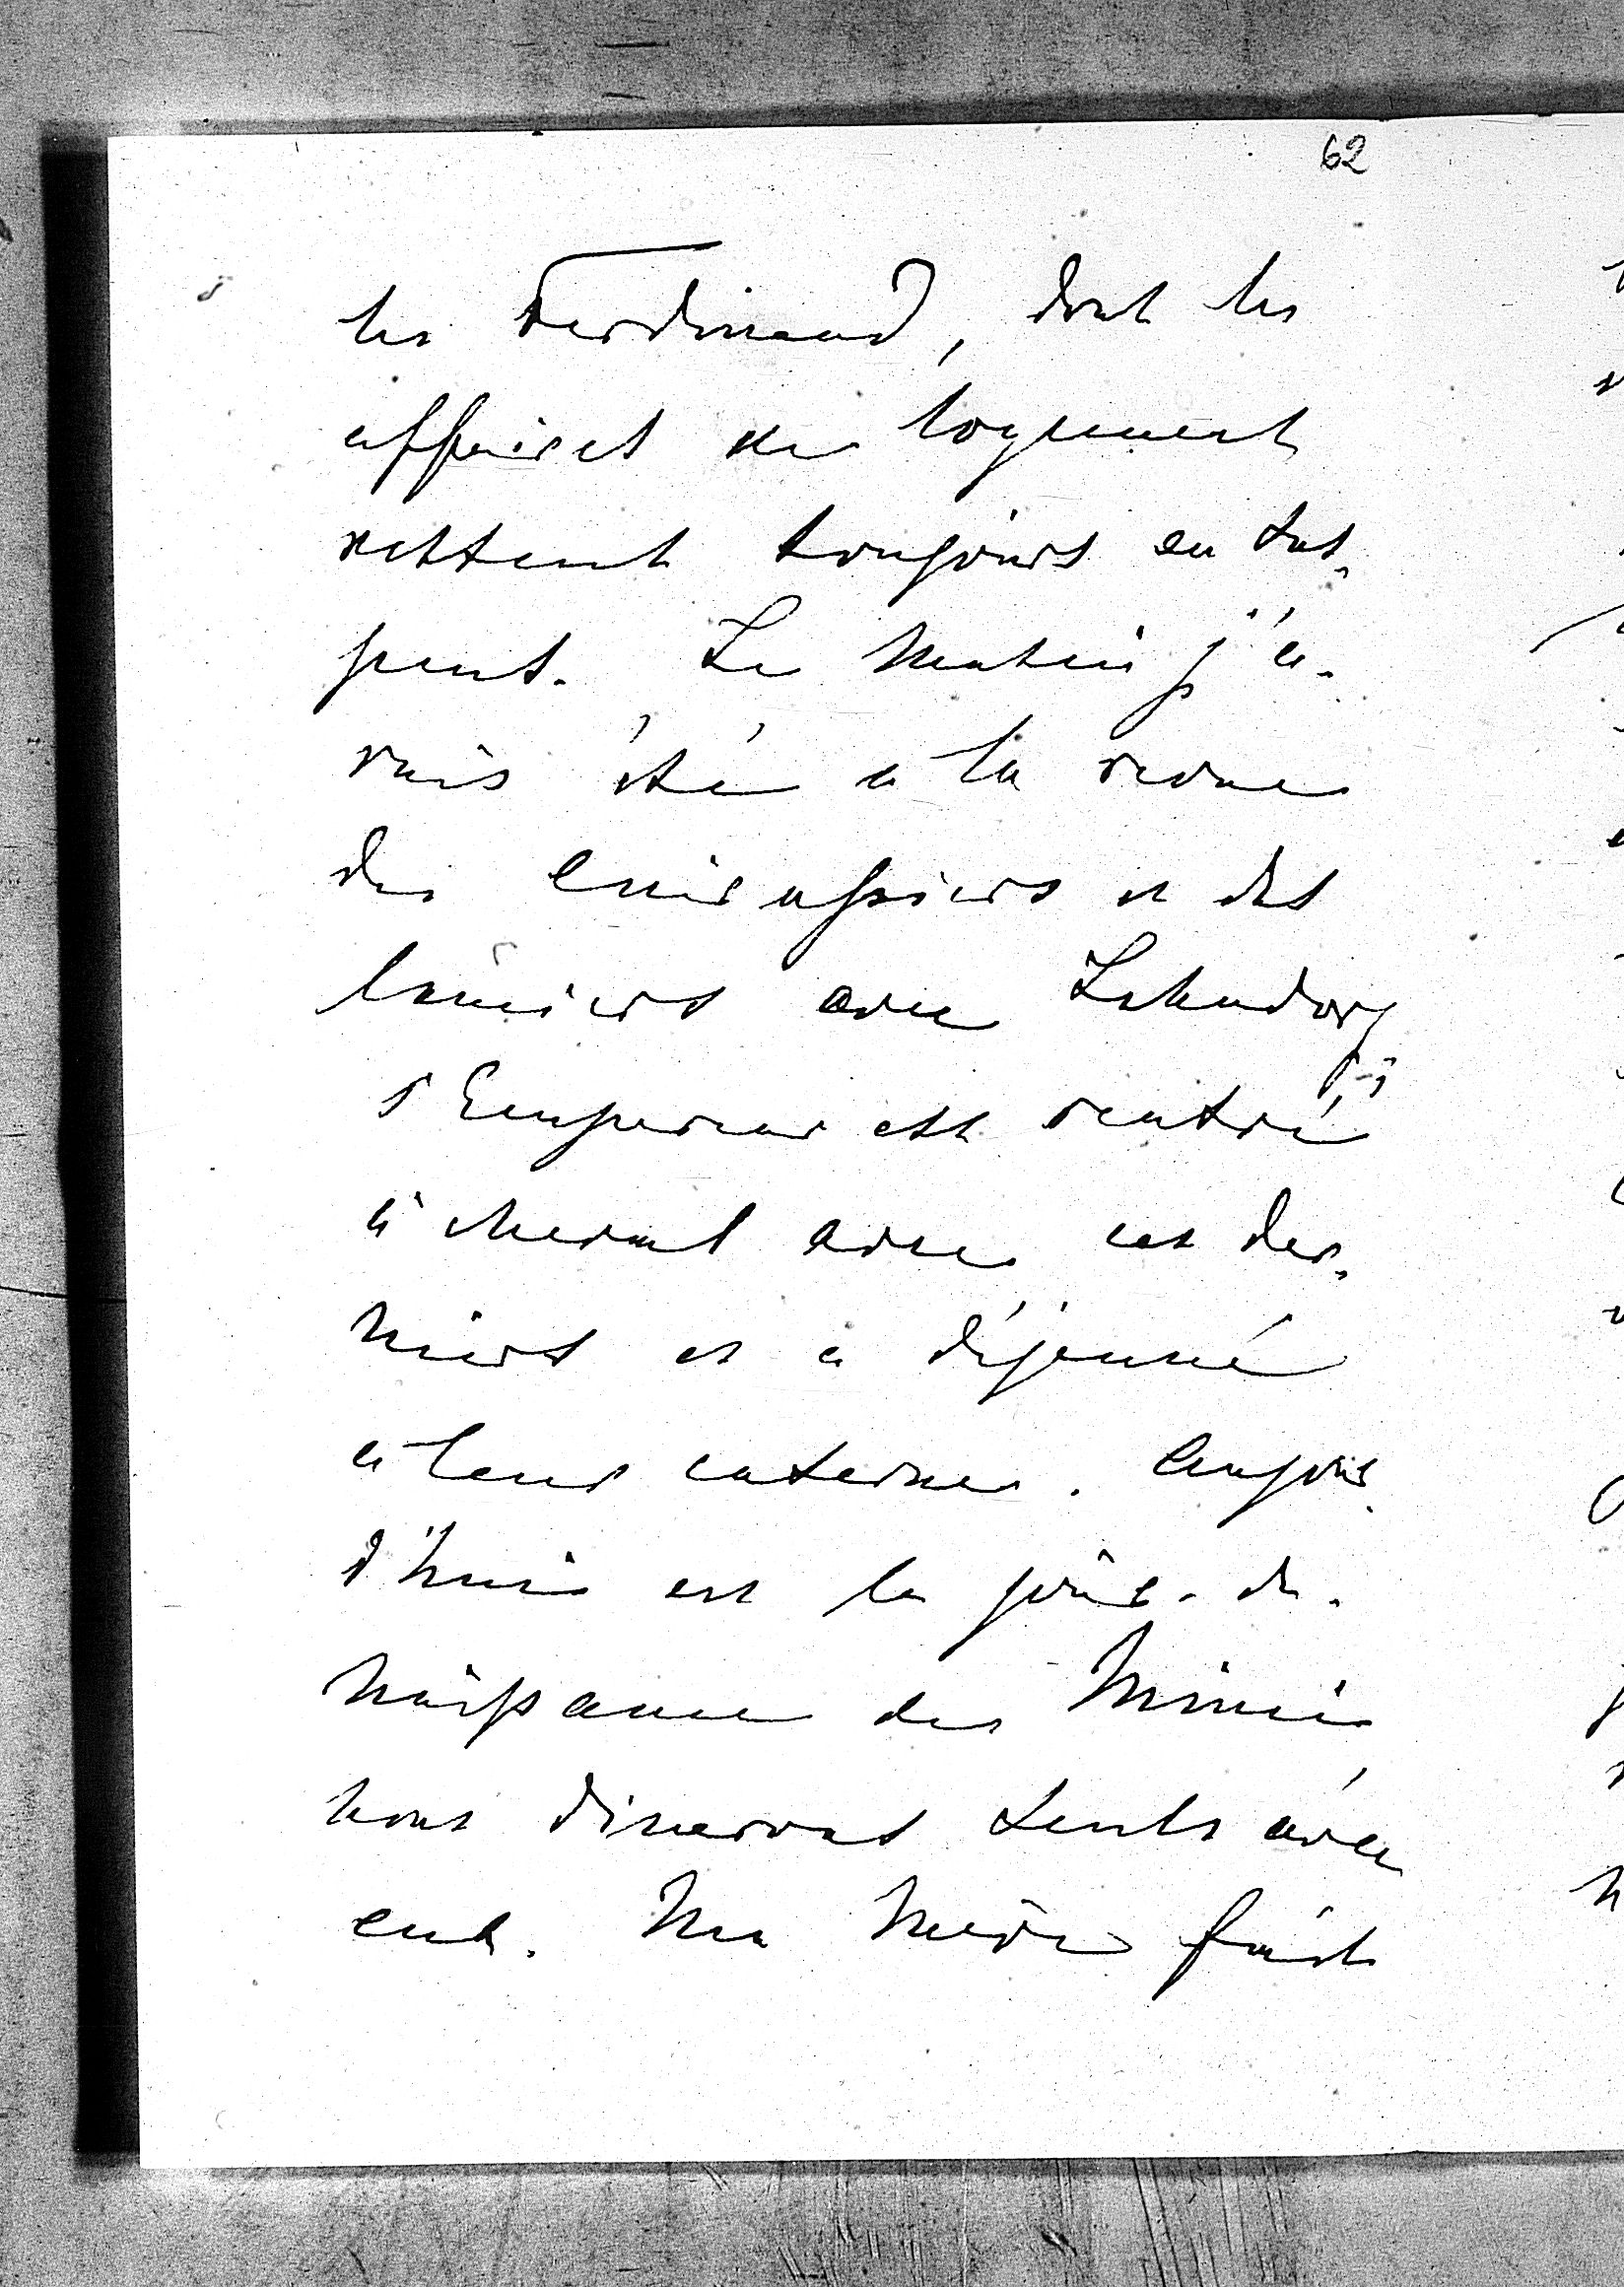 62
les Ferdinand, dont les
affaires de logement
restent toujours en sus-
pens. Le matin j'a-
vais été à la revue
des cuirassiers et des
lanciers avec Lehndorf,
l'Empereur est rentré
à cheval avec ces der-
niers et a déjeuné
à leur caserne. Aujour-
d'hui est le jour-de-
naissance de Mimi
nous dinerons seuls avec
eux. Ma Mère fait